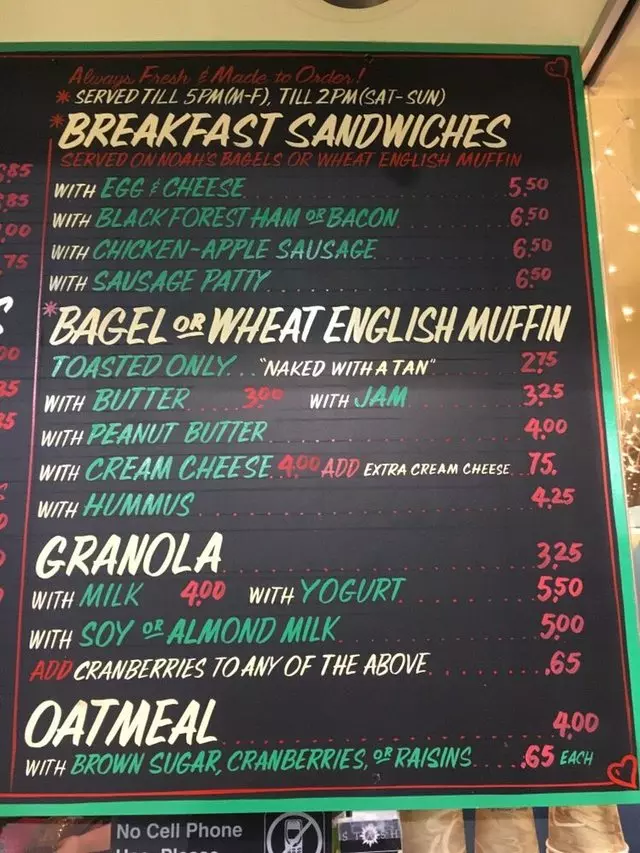 Always Fresh & Made to Order!
* SERVED TILL 5PM (M-F), TILL 2PM (SAT-SUN)
* BREAKFAST SANDWICHES
SERVED ON NOAH'S BAGELS OR WHEAT ENGLISH MUFFIN
WITH EGG & CHEESE 5.50
WITH BLACK FOREST HAM OR BACON 6.50
WITH CHICKEN-APPLE SAUSAGE 6.50
WITH SAUSAGE PATTY 6.50
* BAGEL OR WHEAT ENGLISH MUFFIN
TOASTED ONLY... "NAKED WITH A TAN" 2.75
WITH BUTTER ..... 3.00 WITH JAM 3.25
WITH PEANUT BUTTER 4.00
WITH CREAM CHEESE . 4.00 ADD EXTRA CREAM CHEESE .. .75
WITH HUMMUS 4.25
GRANOLA 3.25
WITH MILK 4.00 WITH YOGURT 5.50
WITH SOY OR ALMOND MILK 5.00
ADD CRANBERRIES TO ANY OF THE ABOVE .65
OATMEAL 4.00
WITH BROWN SUGAR, CRANBERRIES, OR RAISINS .65 EACH
No Cell Phone
STASH